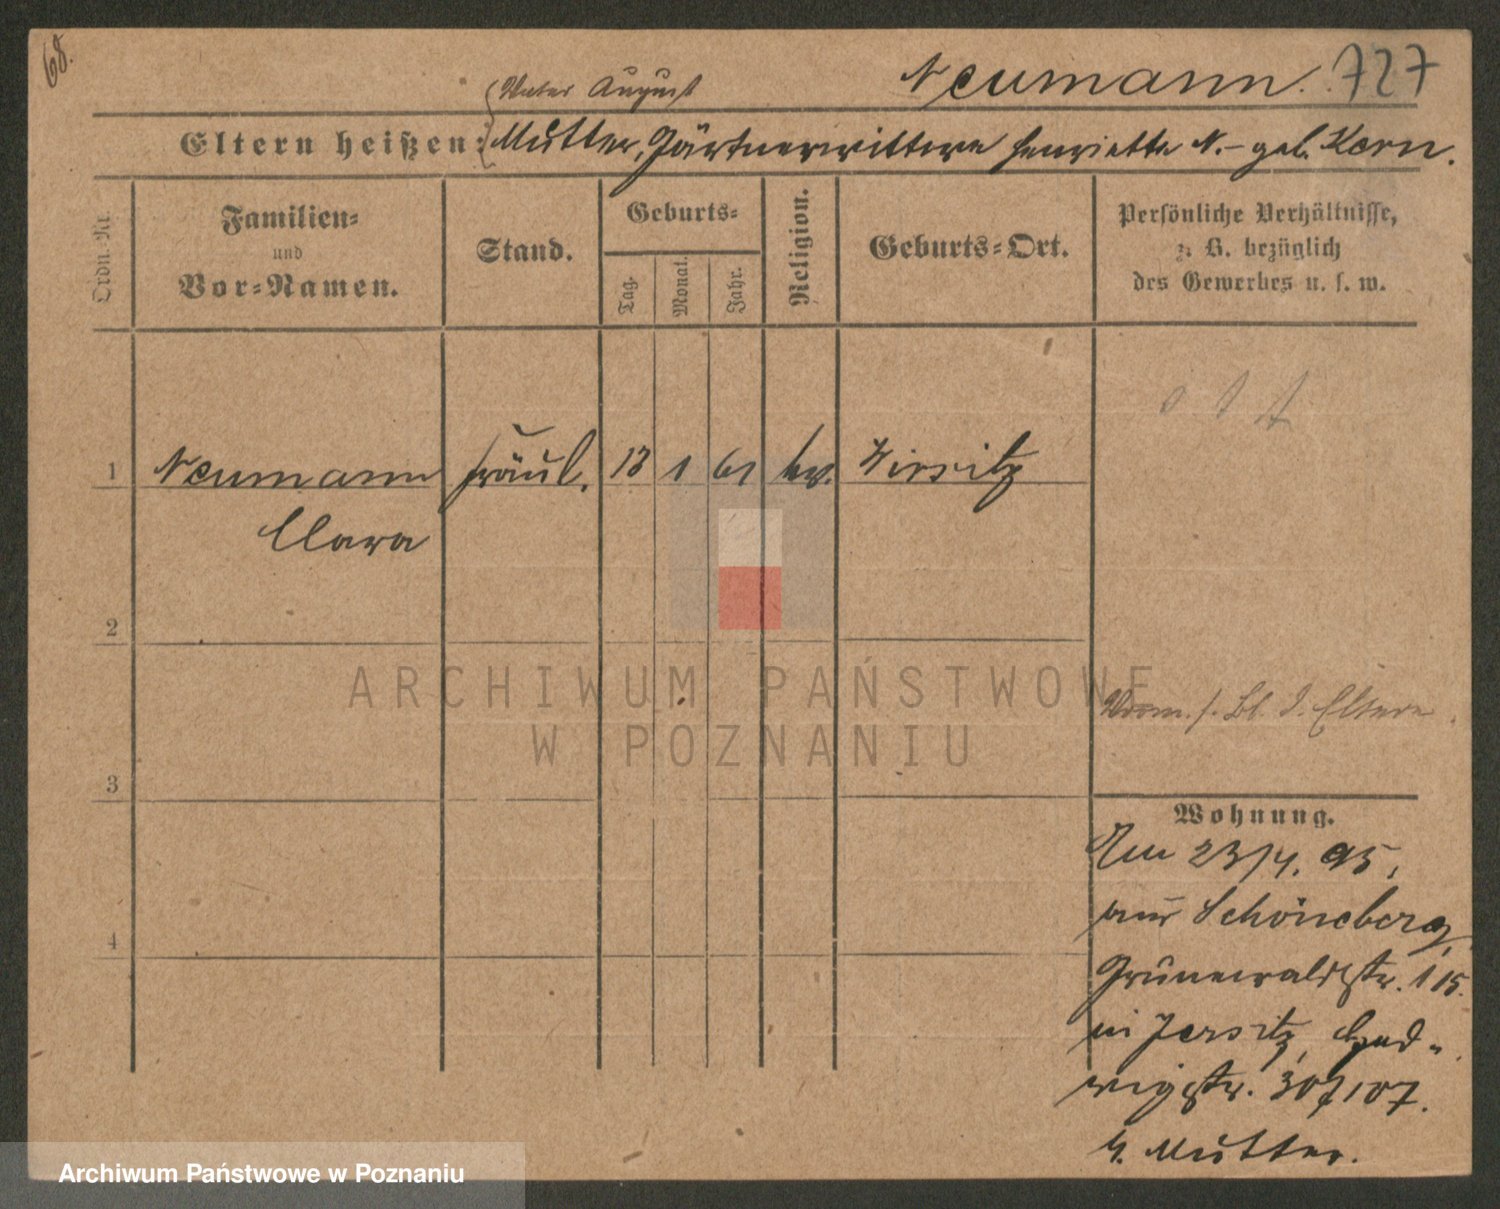 68.
Neumann. 727
Vater August
Eltern heißen: Mutter, Gärtnerwittwe Henriette N. - geb. Korn.
Ordn. Nr.
Familien-
und
Vor-Namen.
Stand.
Geburts-
Tag.
Monat.
Jahr.
Religion.
Geburts-Ort.
Persönliche Verhältnisse,
z. B. bezüglich
des Gewerbes u. s. w.
1 Neumann Fräul. 13 1 61 ev. Wirsitz
Clara
2
3
4
ARCHIWUM PAŃSTWOWE
W POZNANIU
Bl. d. Eltern
Wohnung.
Am 23/4. 95,
aus Schöneberg,
Grünewaldstr. 115.
in Jersitz, Hed-
wigstr. 307/07.
b. Mutter.
Archiwum Państwowe w Poznaniu